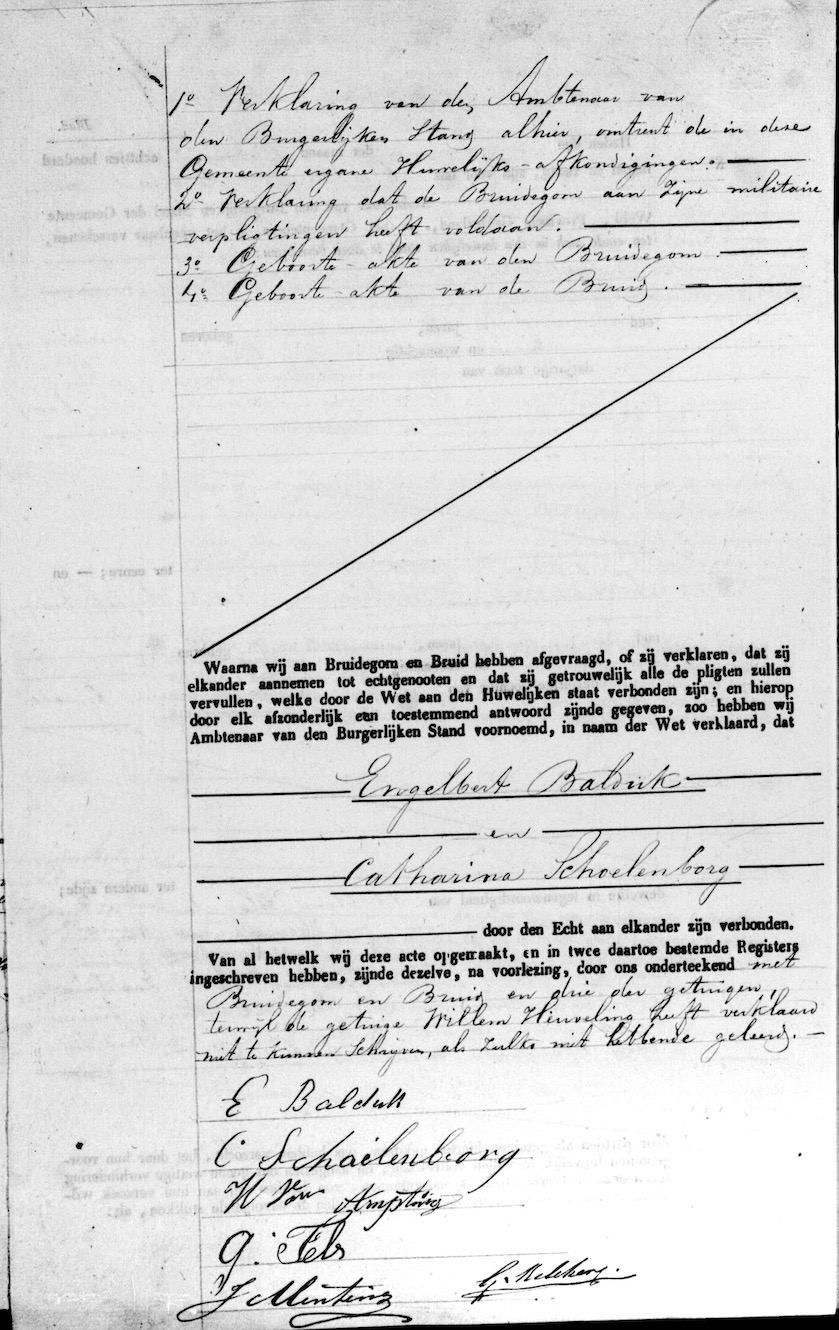 1o Verklaring van den Ambtenaar van
den Burgerlijken Stand alhier, omtrent de in deze
Gemeente ergane Huwelijks-afkondigingen.
2o Verklaring dat de Bruidegom aan zijne militaire
verpligtingen heeft voldaan.
3o Geboorte-akte van den Bruidegom.
4o Geboorte-akte van de Bruid.
Waarna wij aan Bruidegom en Bruid hebben afgevraagd, of zij verklaren, dat zij
elkander aannemen tot echtgenooten en dat zij getrouwelijk alle de pligten zullen
vervullen, welke door de Wet aan den Huwelijken staat verbonden zijn; en hierop
door elk afzonderlijk een toestemmend antwoord zijnde gegeven, zoo hebben wij
Ambtenaar van den Burgerlijken Stand voornoemd, in naam der Wet verklaard, dat
Engelbert Balduk
en
Catharina Schoelenborg
door den Echt aan elkander zijn verbonden.
Van al hetwelk wij deze acte opgemaakt, en in twee daartoe bestemde Registers
ingeschreven hebben, zijnde dezelve, na voorlezing, door ons onderteekend met
Bruidegom en Bruid en drie der getuigen,
terwijl de getuige Willem Heuvelino heeft verklaard
niet te kunnen Schrijven, als zulks niet hebbende geleerd.
E Balduk
C Schoelenborg
H Van Ampting
G. Tels
J Menting